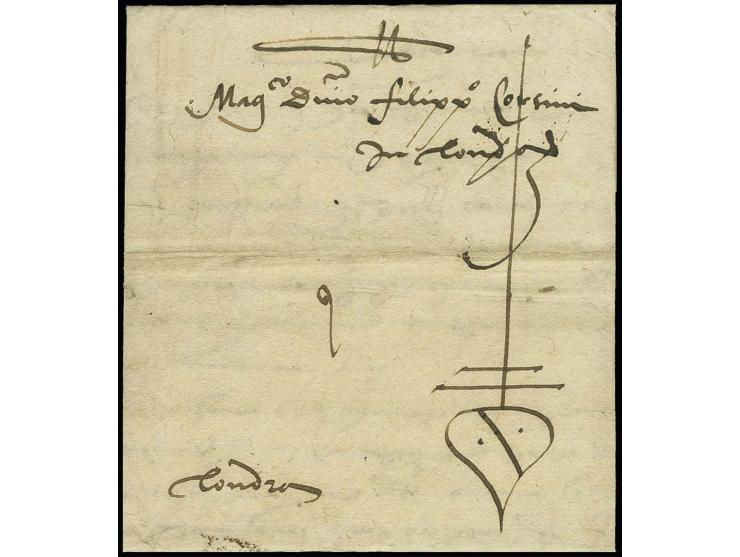 Mag.co Dnio filipp.o Corsini
In Londra
9
Londra